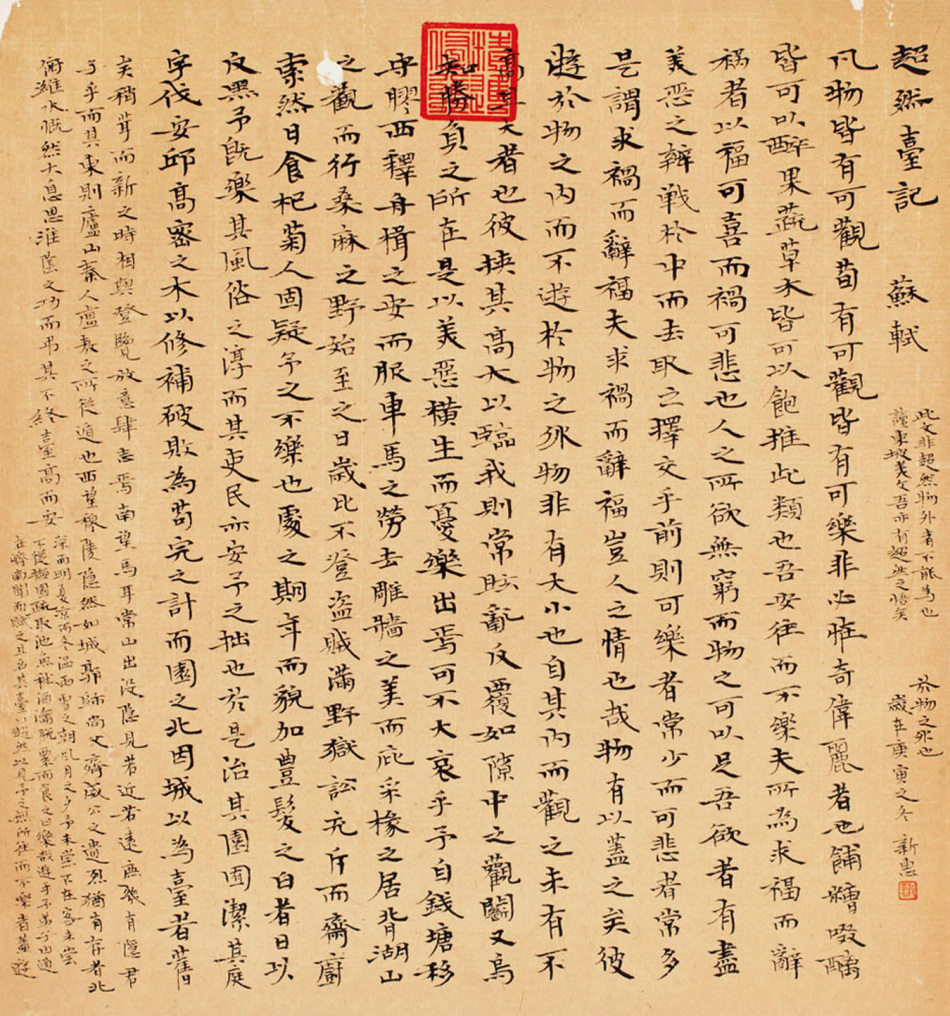 超然臺記 蘇軾
此文非超然物外者不能為也
讀東坡美文吾亦有超然之悟矣
凡物皆有可觀苟有可觀皆有可樂非必怪奇偉麗者也餔糟啜醨
皆可以醉果蔬草木皆可以飽推此類也吾安往而不樂夫所為求福而辭
禍者以福可喜而禍可悲也人之所欲無窮而物之可以足吾欲者有盡
美惡之辨戰於中而去取之擇交乎前則可樂者常少而可悲者常多
是謂求禍而辭福夫求禍而辭福豈人之情也哉物有以蓋之矣彼
遊於物之內而不遊於物之外物非有大小也自其內而觀之未有不
高且大者也彼挾其高大以臨我則常眩亂反覆如隙中之觀鬬又烏
知勝負之所在是以美惡橫生而憂樂出焉可不大哀乎予自錢塘移
守膠西釋舟楫之安而服車馬之勞去雕牆之美而庇采椽之居背湖山
之觀而行桑麻之野始至之日歲比不登盜賊滿野獄訟充斥而齋廚
索然日食杞菊人固疑予之不樂也處之期年而貌加豐髮之白者日以
反黑予既樂其風俗之淳而其吏民亦安予之拙也於是治其園囿潔其庭
宇伐安邱高密之木以修補破敗為苟完之計而園之北因城以為臺者舊
矣稍葺而新之時相與登覽放意肆志焉南望馬耳常山出沒隱見若近若遠庶幾有隱君
子乎而其東則廬山秦人盧敖之所從遁也西望穆陵隱然如城郭師尚父齊威公之遺烈猶有存者北
俯濰水慨然大息思淮陰之功而弔其不終臺高而安
深而明夏涼而冬溫雨雪之朝風月之夕予未嘗不在客未嘗
不從擷園蔬取池魚秫酒瀹脫粟而食之曰樂哉遊乎予弟子由適
在濟南聞而賦之且名其臺曰超然以見予之無所往而不樂者蓋遊
於物之外也
歲在庚寅之冬 新惠